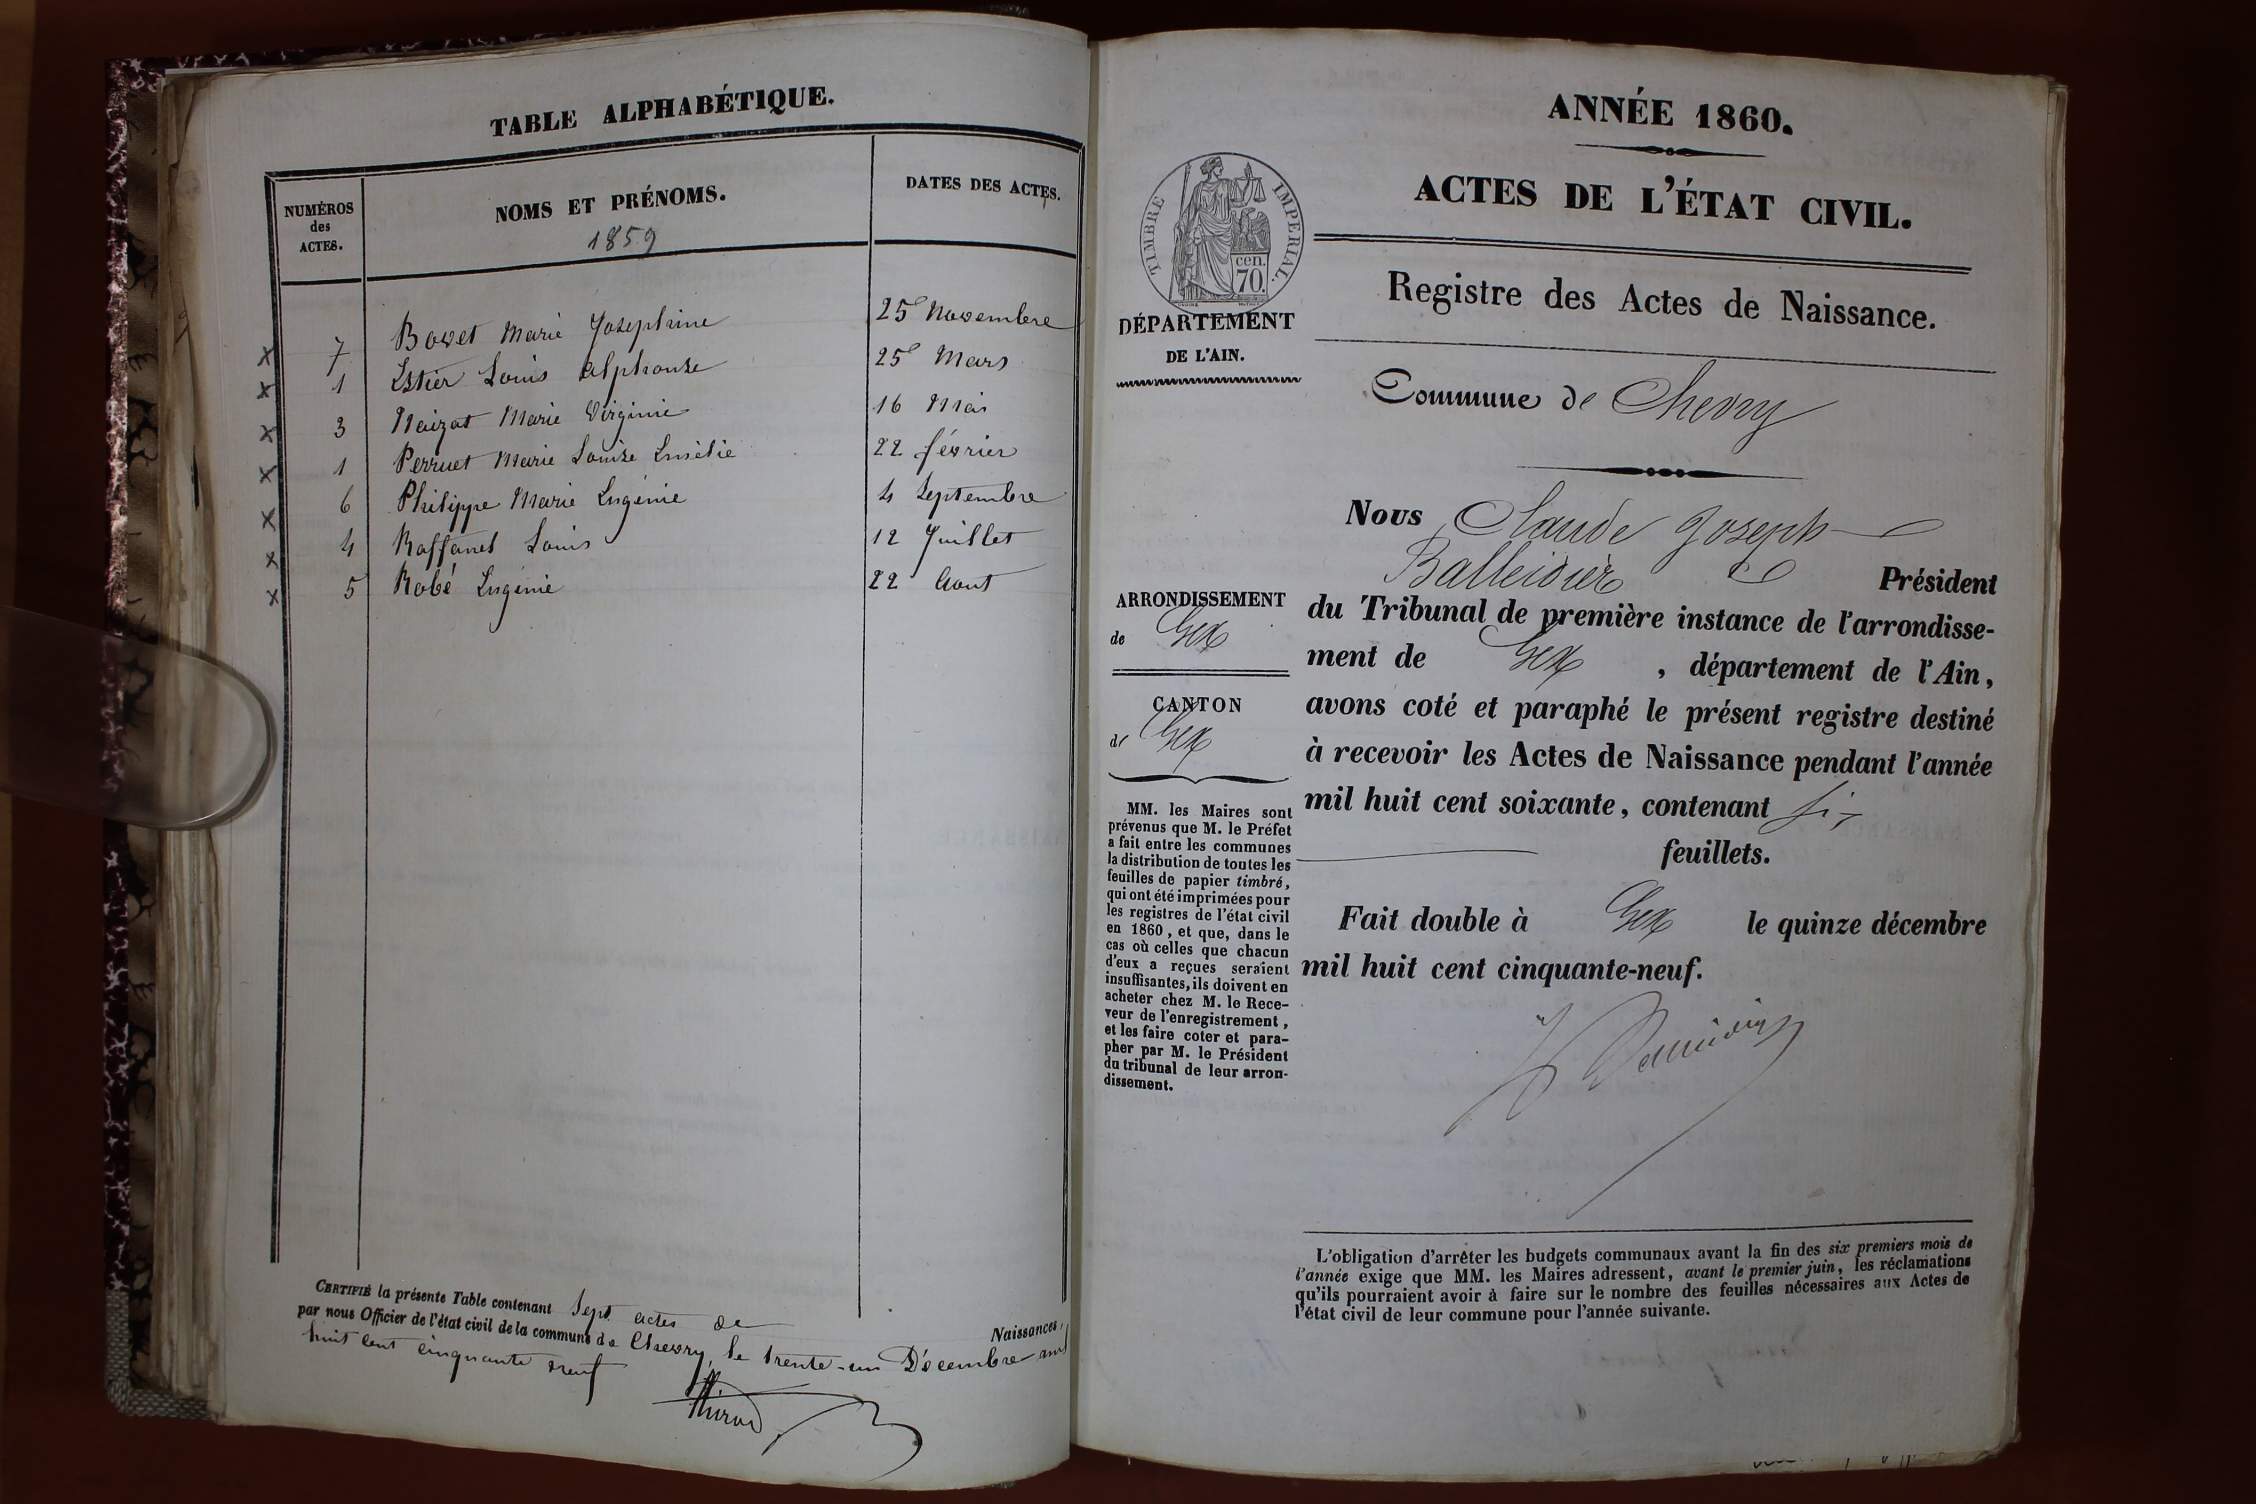 TABLE ALPHABÉTIQUE.
NUMÉROS des ACTES.
NOMS ET PRÉNOMS.
1859
DATES DES ACTES.
7 Bovet Marie Josephine 25 Novembre
1 Estier Louis Alphonse 25 Mars
3 Naizot Marie Virginie 16 Mai
1 Perruet Marie Louise 22 février
6 Philippe Marie Eugénie 4 Septembre
4 Raffanel Louis 12 Juillet
5 Robé Eugénie 22 Aout
CERTIFIÉ la présente Table contenant Sept actes de Naissances,
par nous Officier de l'état civil de la commune de Chevry, le trente-un Décembre mil
huit cent cinquante neuf
ANNÉE 1860.
ACTES DE L'ÉTAT CIVIL.
TIMBRE IMPERIAL.
cen.
70.
Registre des Actes de Naissance.
DÉPARTEMENT
DE L'AIN.
Commune de Chevry
Nous Claude Joseph
Balleidier Président
du Tribunal de première instance de l'arrondisse-
ment de Gex, département de l'Ain,
avons coté et paraphé le présent registre destiné
à recevoir les Actes de Naissance pendant l'année
mil huit cent soixante, contenant
feuillets.
Fait double à Gex le quinze décembre
mil huit cent cinquante-neuf.
ARRONDISSEMENT
de Gex
CANTON
de Gex
MM. les Maires sont
prévenus que M. le Préfet
a fait entre les communes
la distribution de toutes les
feuilles de papier timbré,
qui ont été imprimées pour
les registres de l'état civil
en 1860, et que, dans le
cas où celles que chacun
d'eux a reçues seraient
insuffisantes, ils doivent en
acheter chez M. le Rece-
veur de l'enregistrement,
et les faire coter et para-
pher par M. le Président
du tribunal de leur arron-
dissement.
L'obligation d'arrêter les budgets communaux avant la fin des six premiers mois de
l'année exige que MM. les Maires adressent, avant le premier juin, les réclamations
qu'ils pourraient avoir à faire sur le nombre des feuilles nécessaires aux Actes de
l'état civil de leur commune pour l'année suivante.